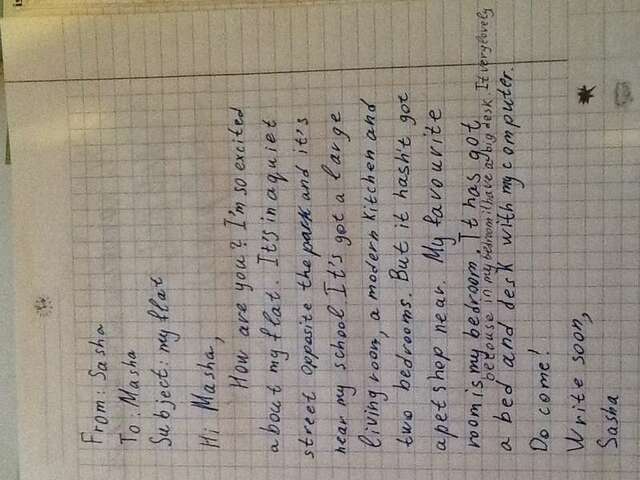 From: Sasha
To: Masha
Subject: my flat
Hi Masha,
How are you? I'm so excited
about my flat. It's in a quiet
street opposite the park and it's
near my school. It's got a large
living room, a modern kitchen and
two bedrooms. But it hasn't got
a pet shop near. My favourite
room is my bedroom. It has got
because in my bedroom i have a big desk It very lovely
a bed and desk with my computer.
Do come!
Write soon,
Sasha